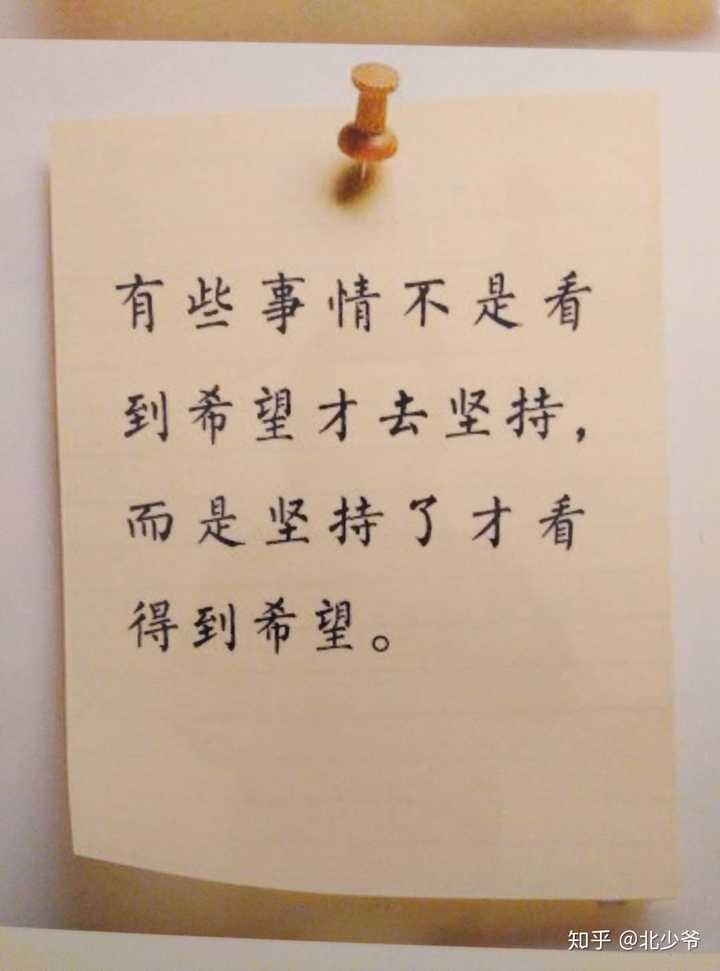 有些事情不是看
到希望才去坚持，
而是坚持了才看
得到希望。
知乎 @北少爷